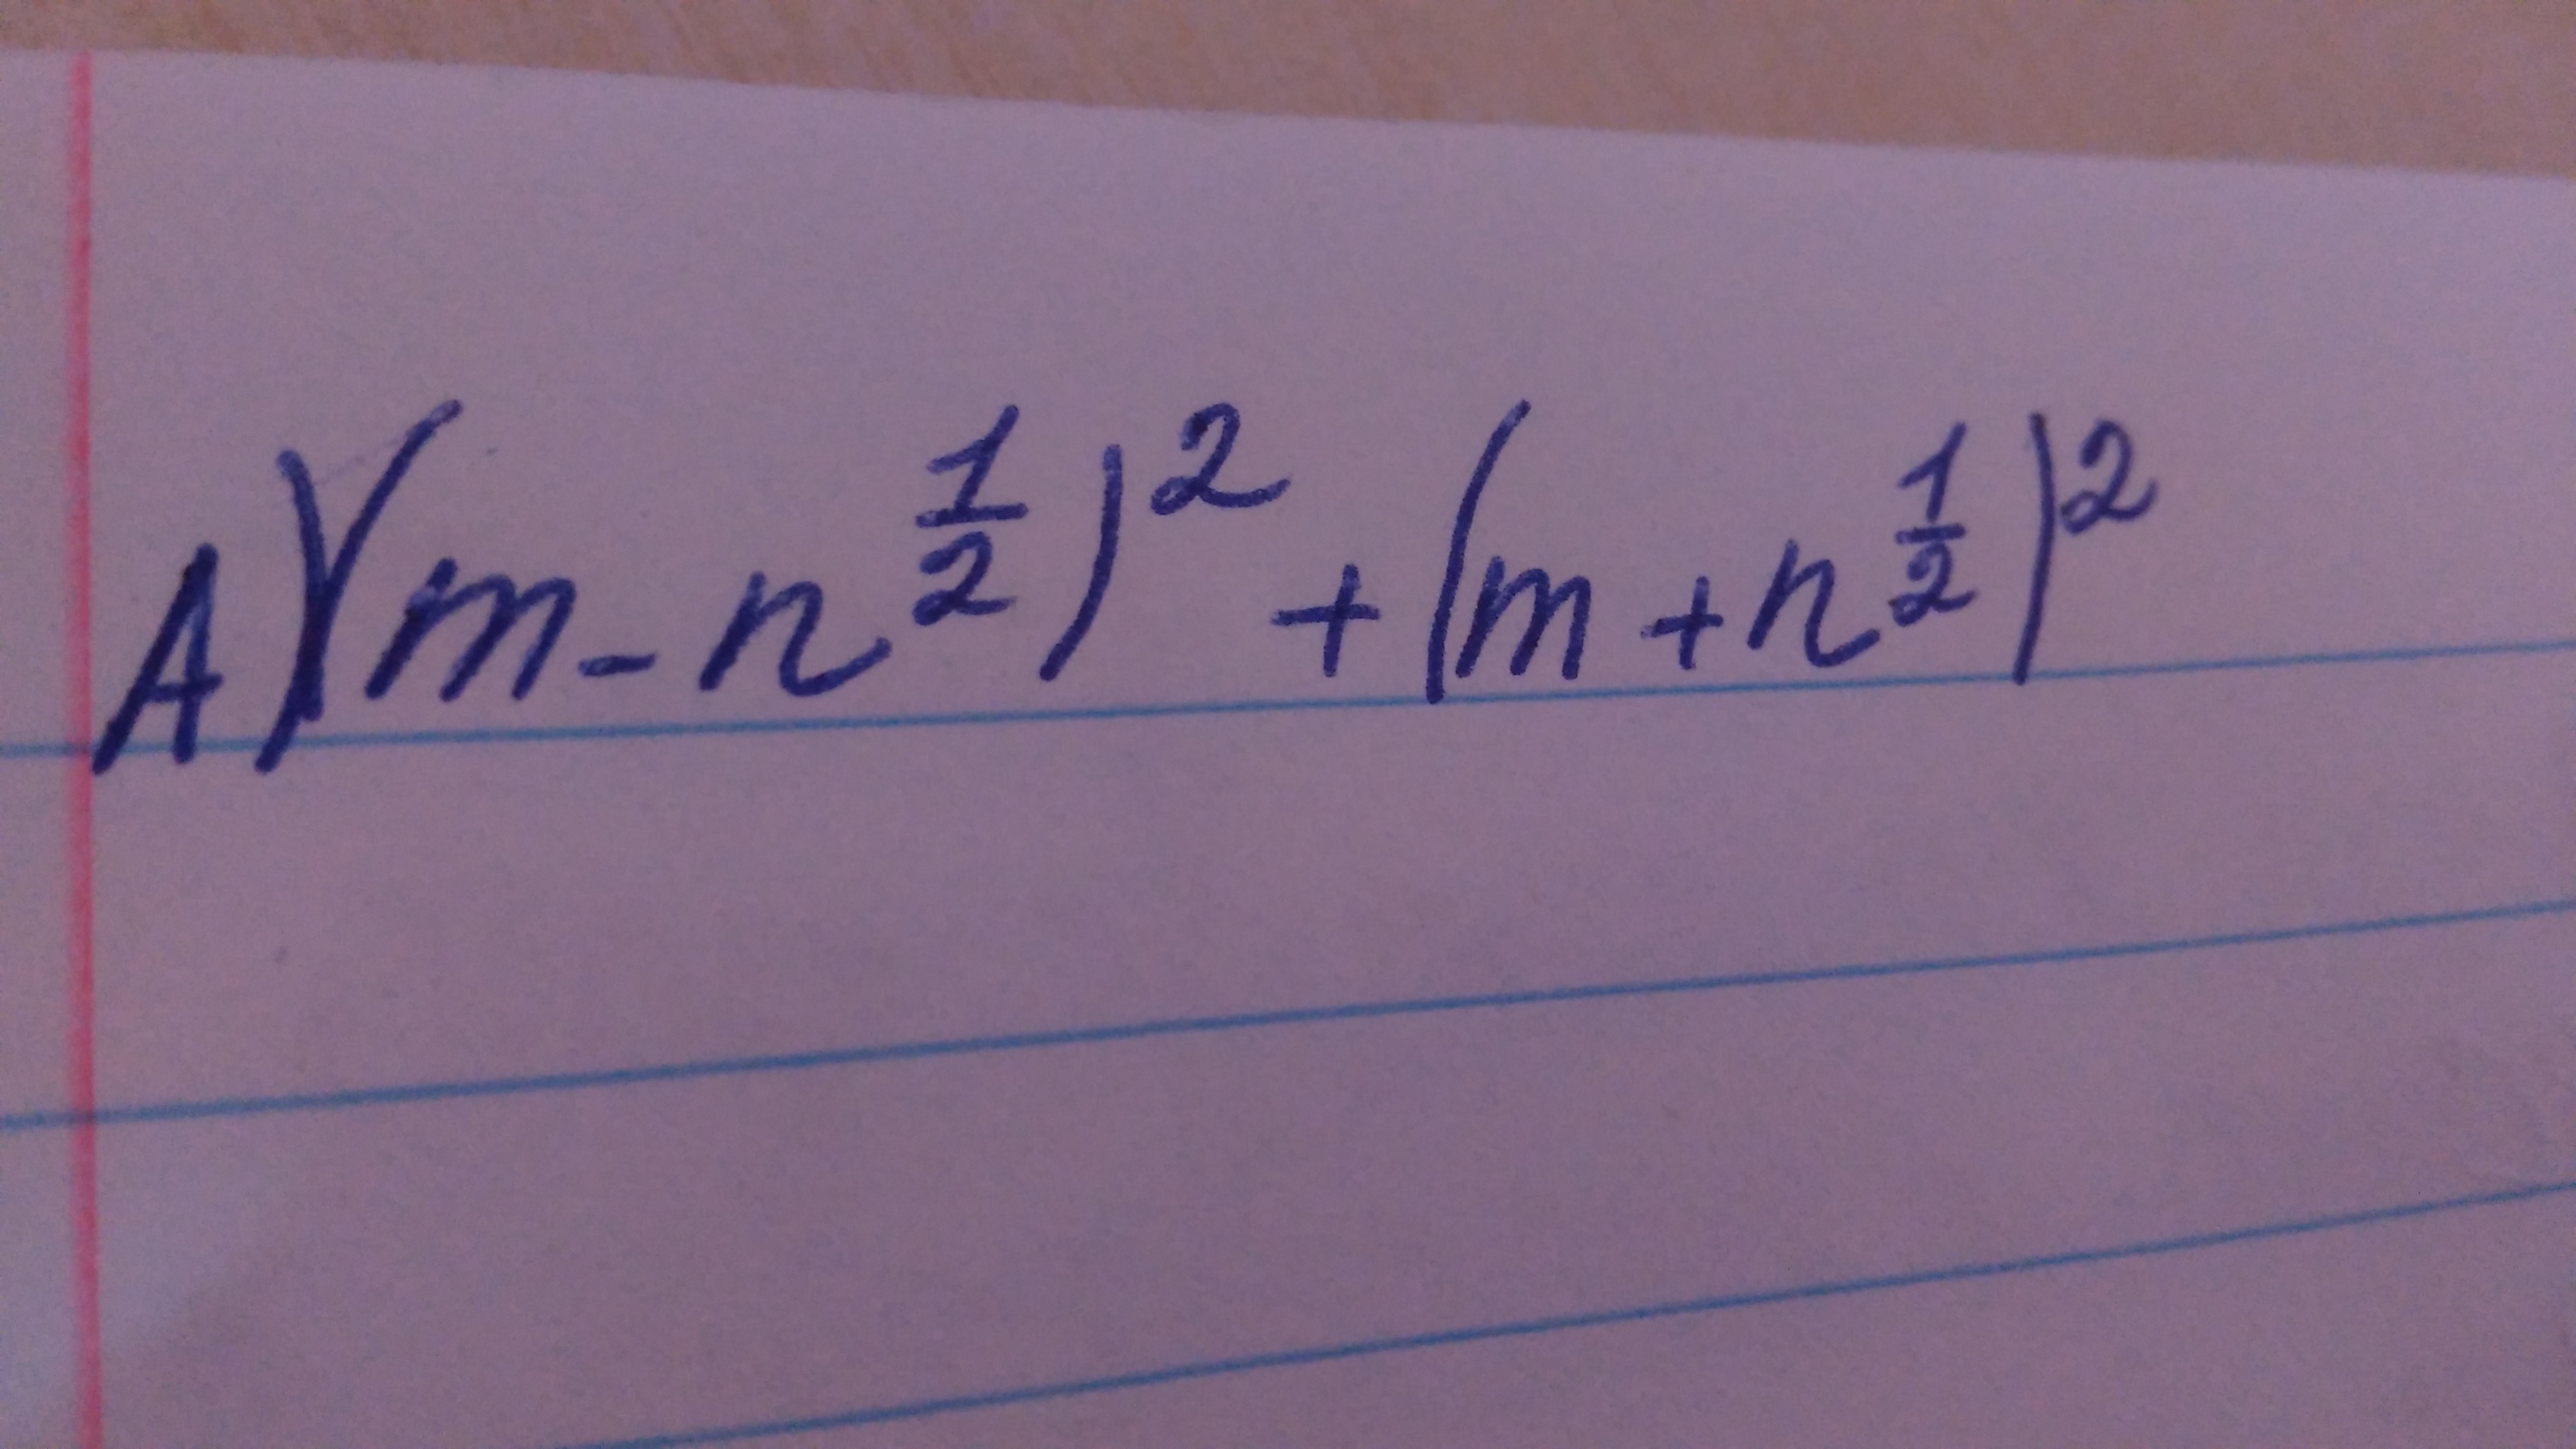 A) (m - n^{\frac{1}{2}})^2 + (m + n^{\frac{1}{2}})^2